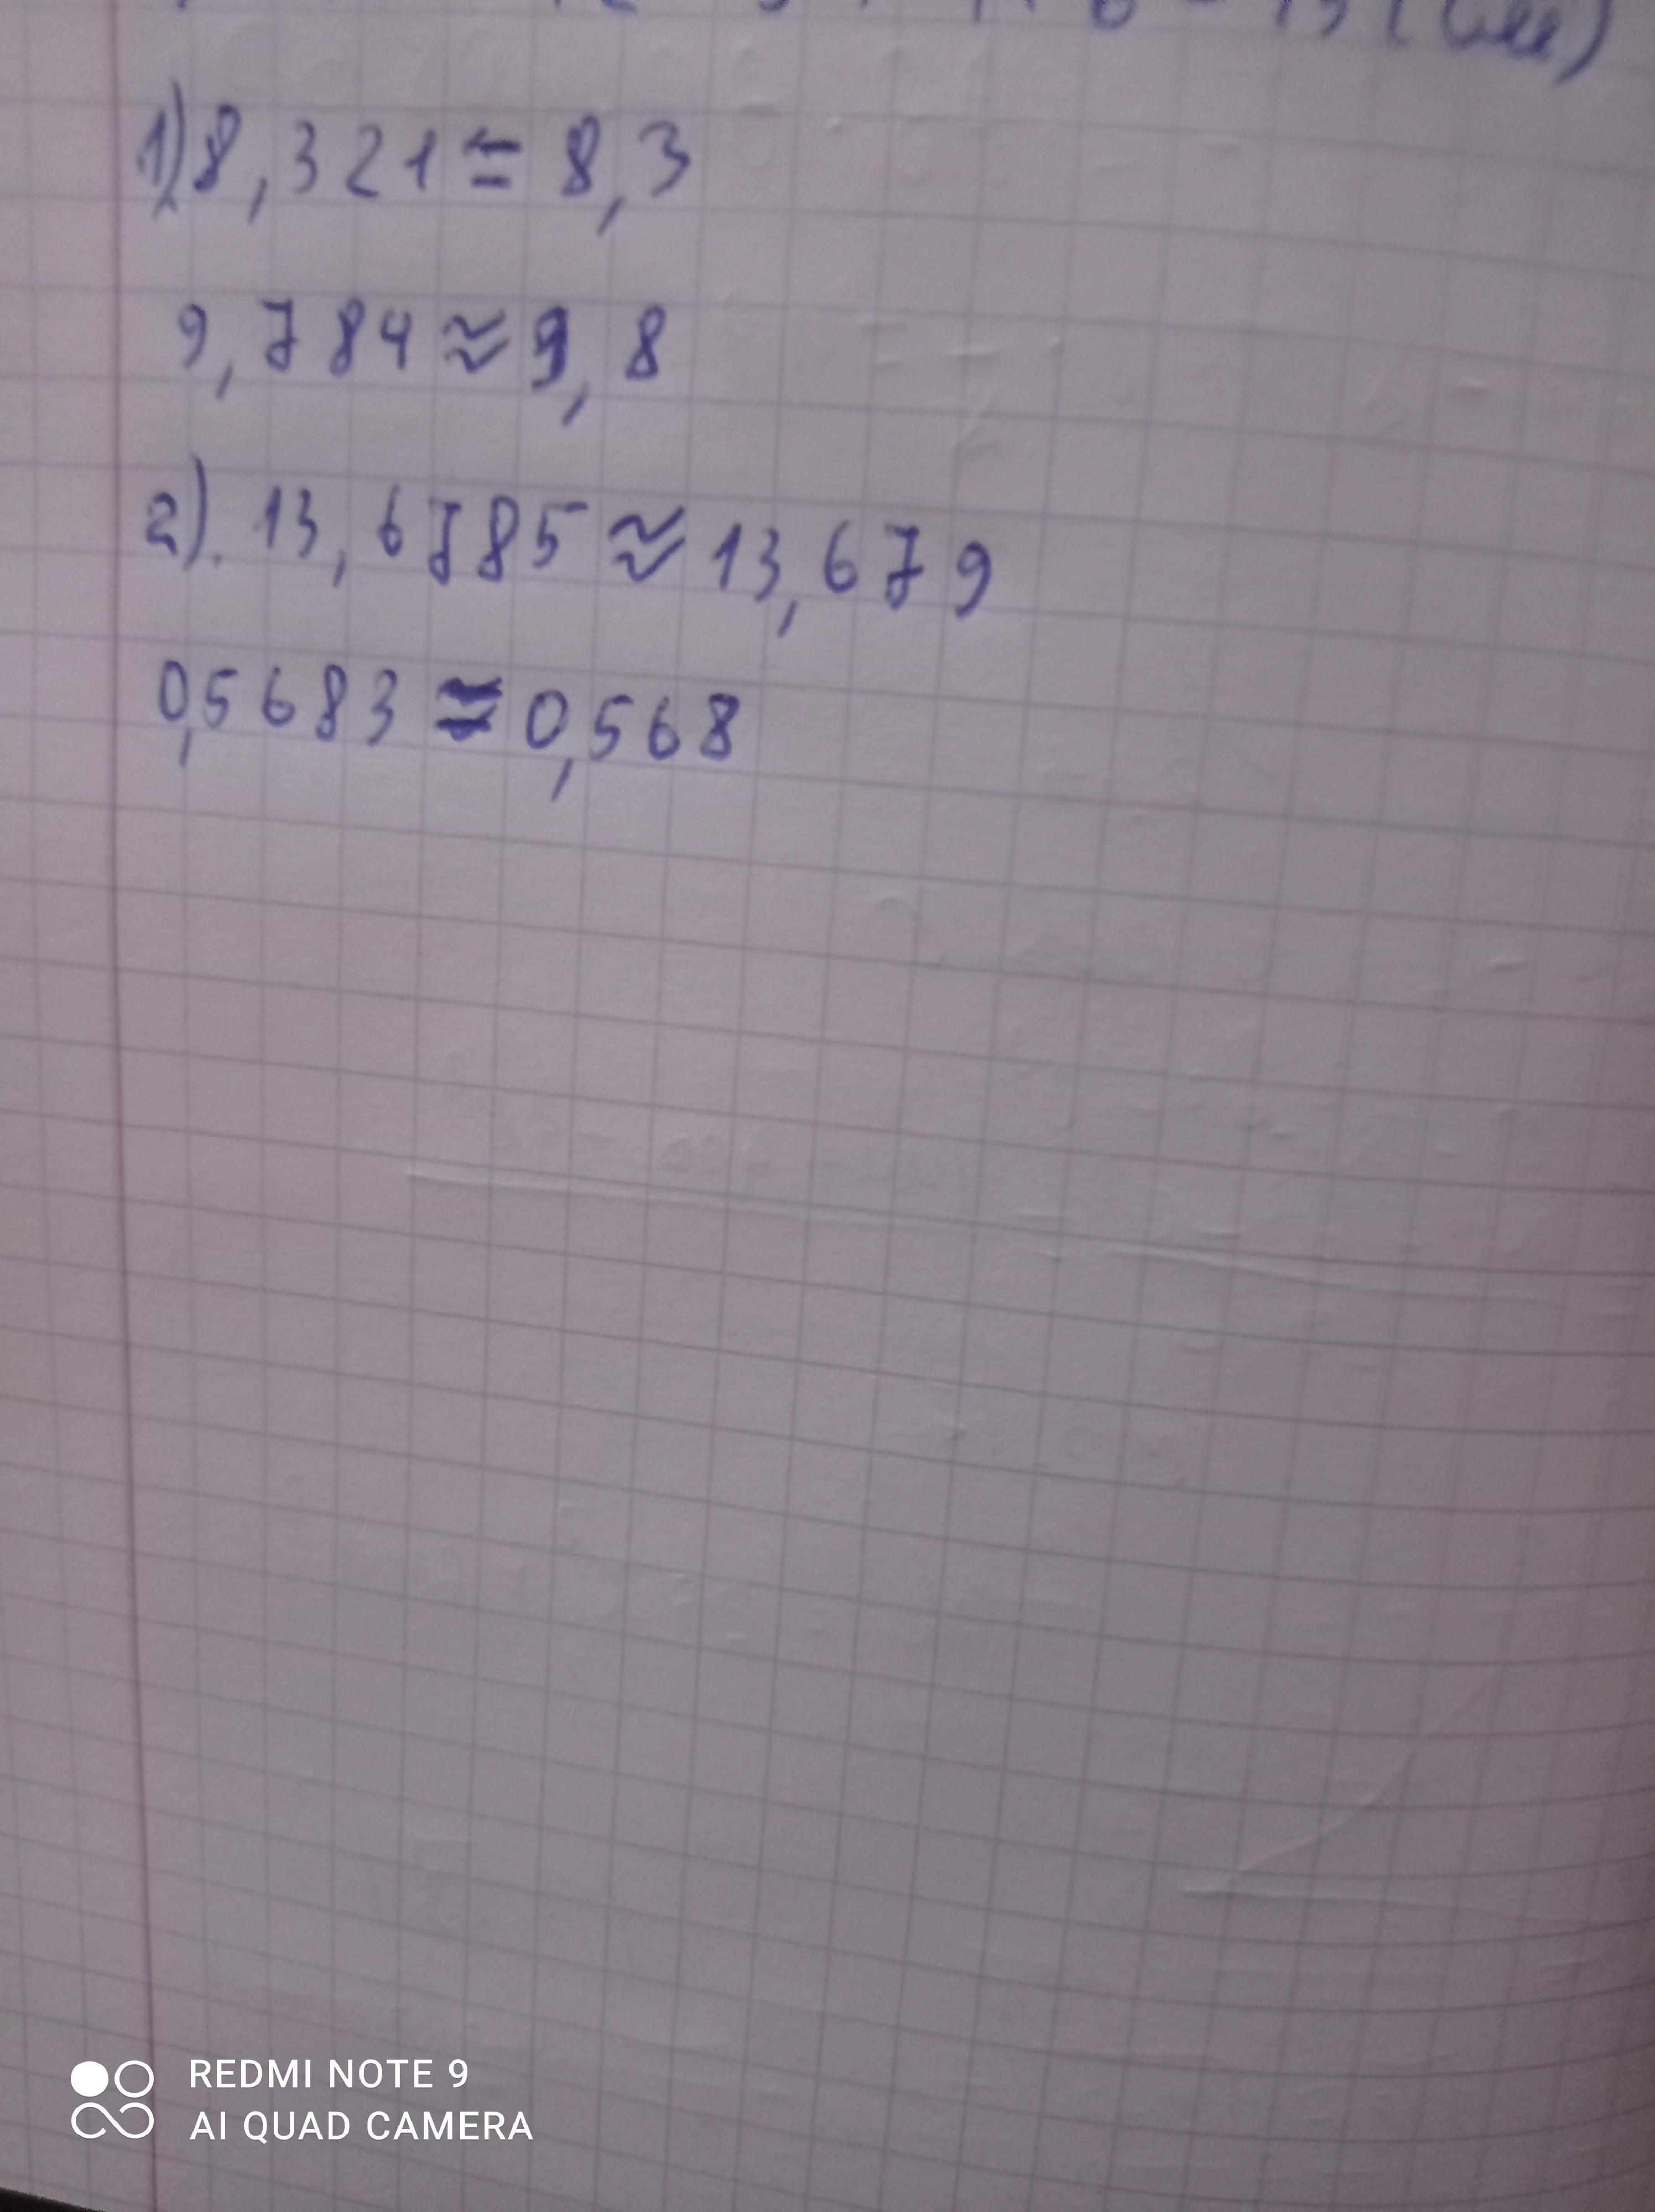 1) 8,321 ≈ 8,3
9,784 ≈ 9,8
2). 13,6785 ≈ 13,679
0,5683 ≈ 0,568
REDMI NOTE 9
AI QUAD CAMERA